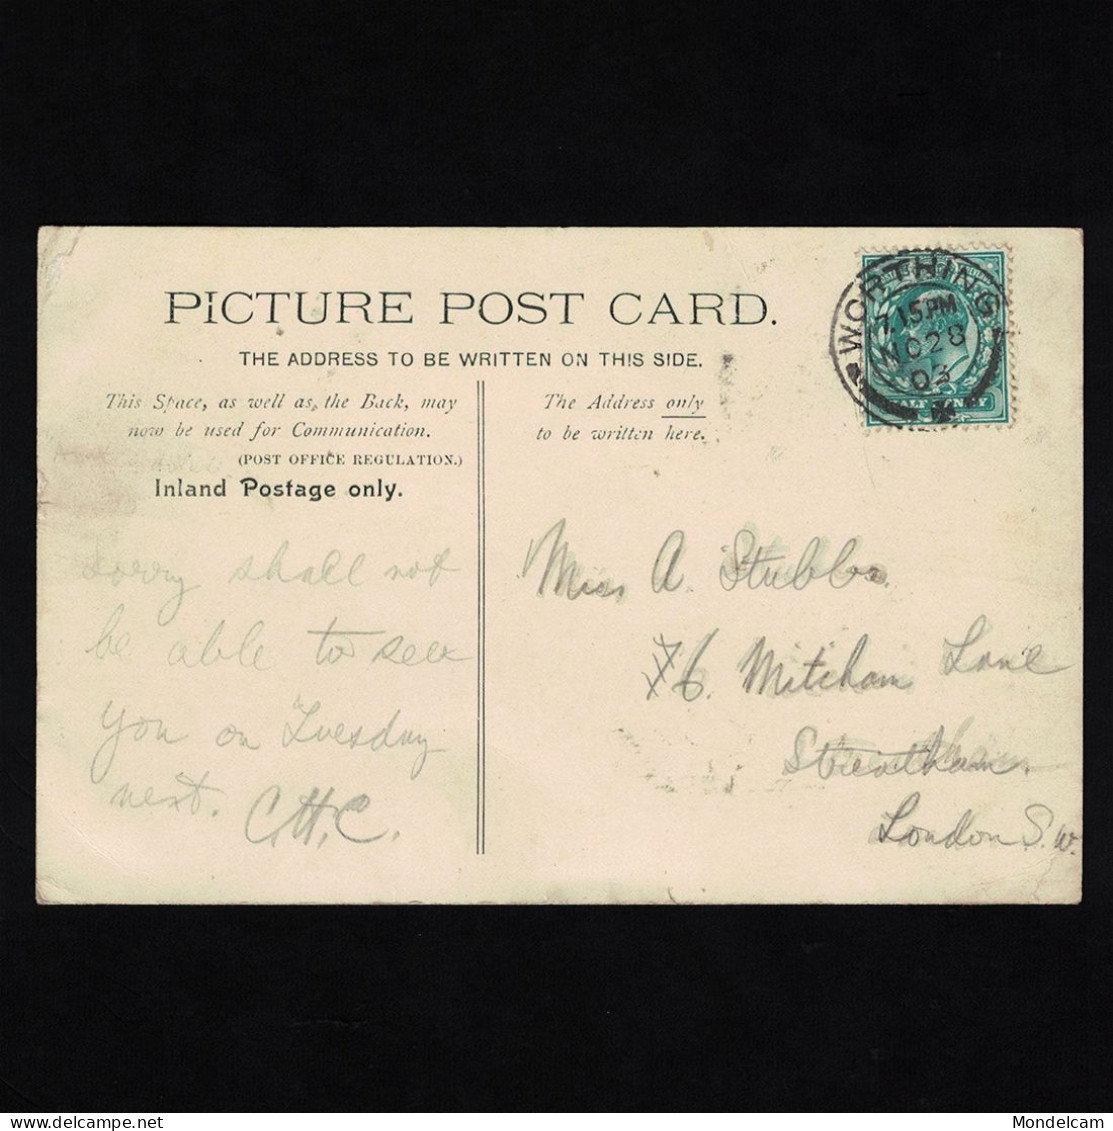 PICTURE POST CARD.
THE ADDRESS TO BE WRITTEN ON THIS SIDE.
This Space, as well as, the Back, may
now be used for Communication.
(POST OFFICE REGULATION.)
Inland Postage only.
The Address only
to be written here.
WORTHING
7.15.PM
NO 28
03
HALFPENNY
Sorry shall not
be able to see
you on Tuesday
next. C.H.C.
Miss A. Stubbs.
76. Mitcham Lane
Streatham.
London S.W.
Mondelcam